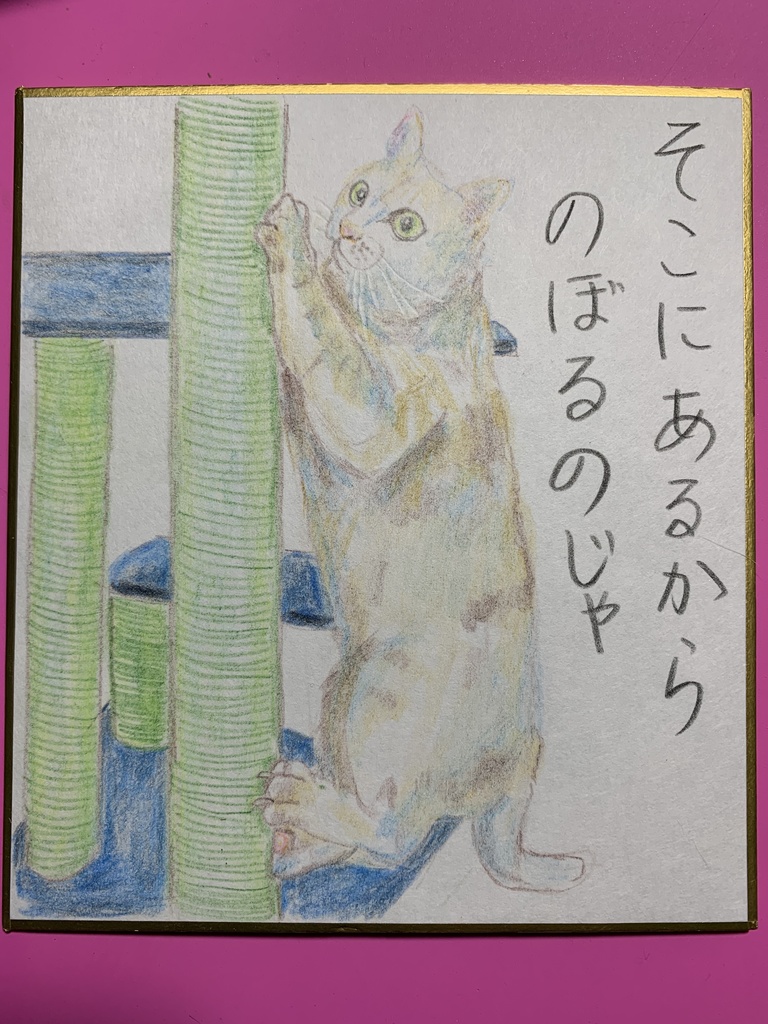 そこにあるから
のぼるのじゃ